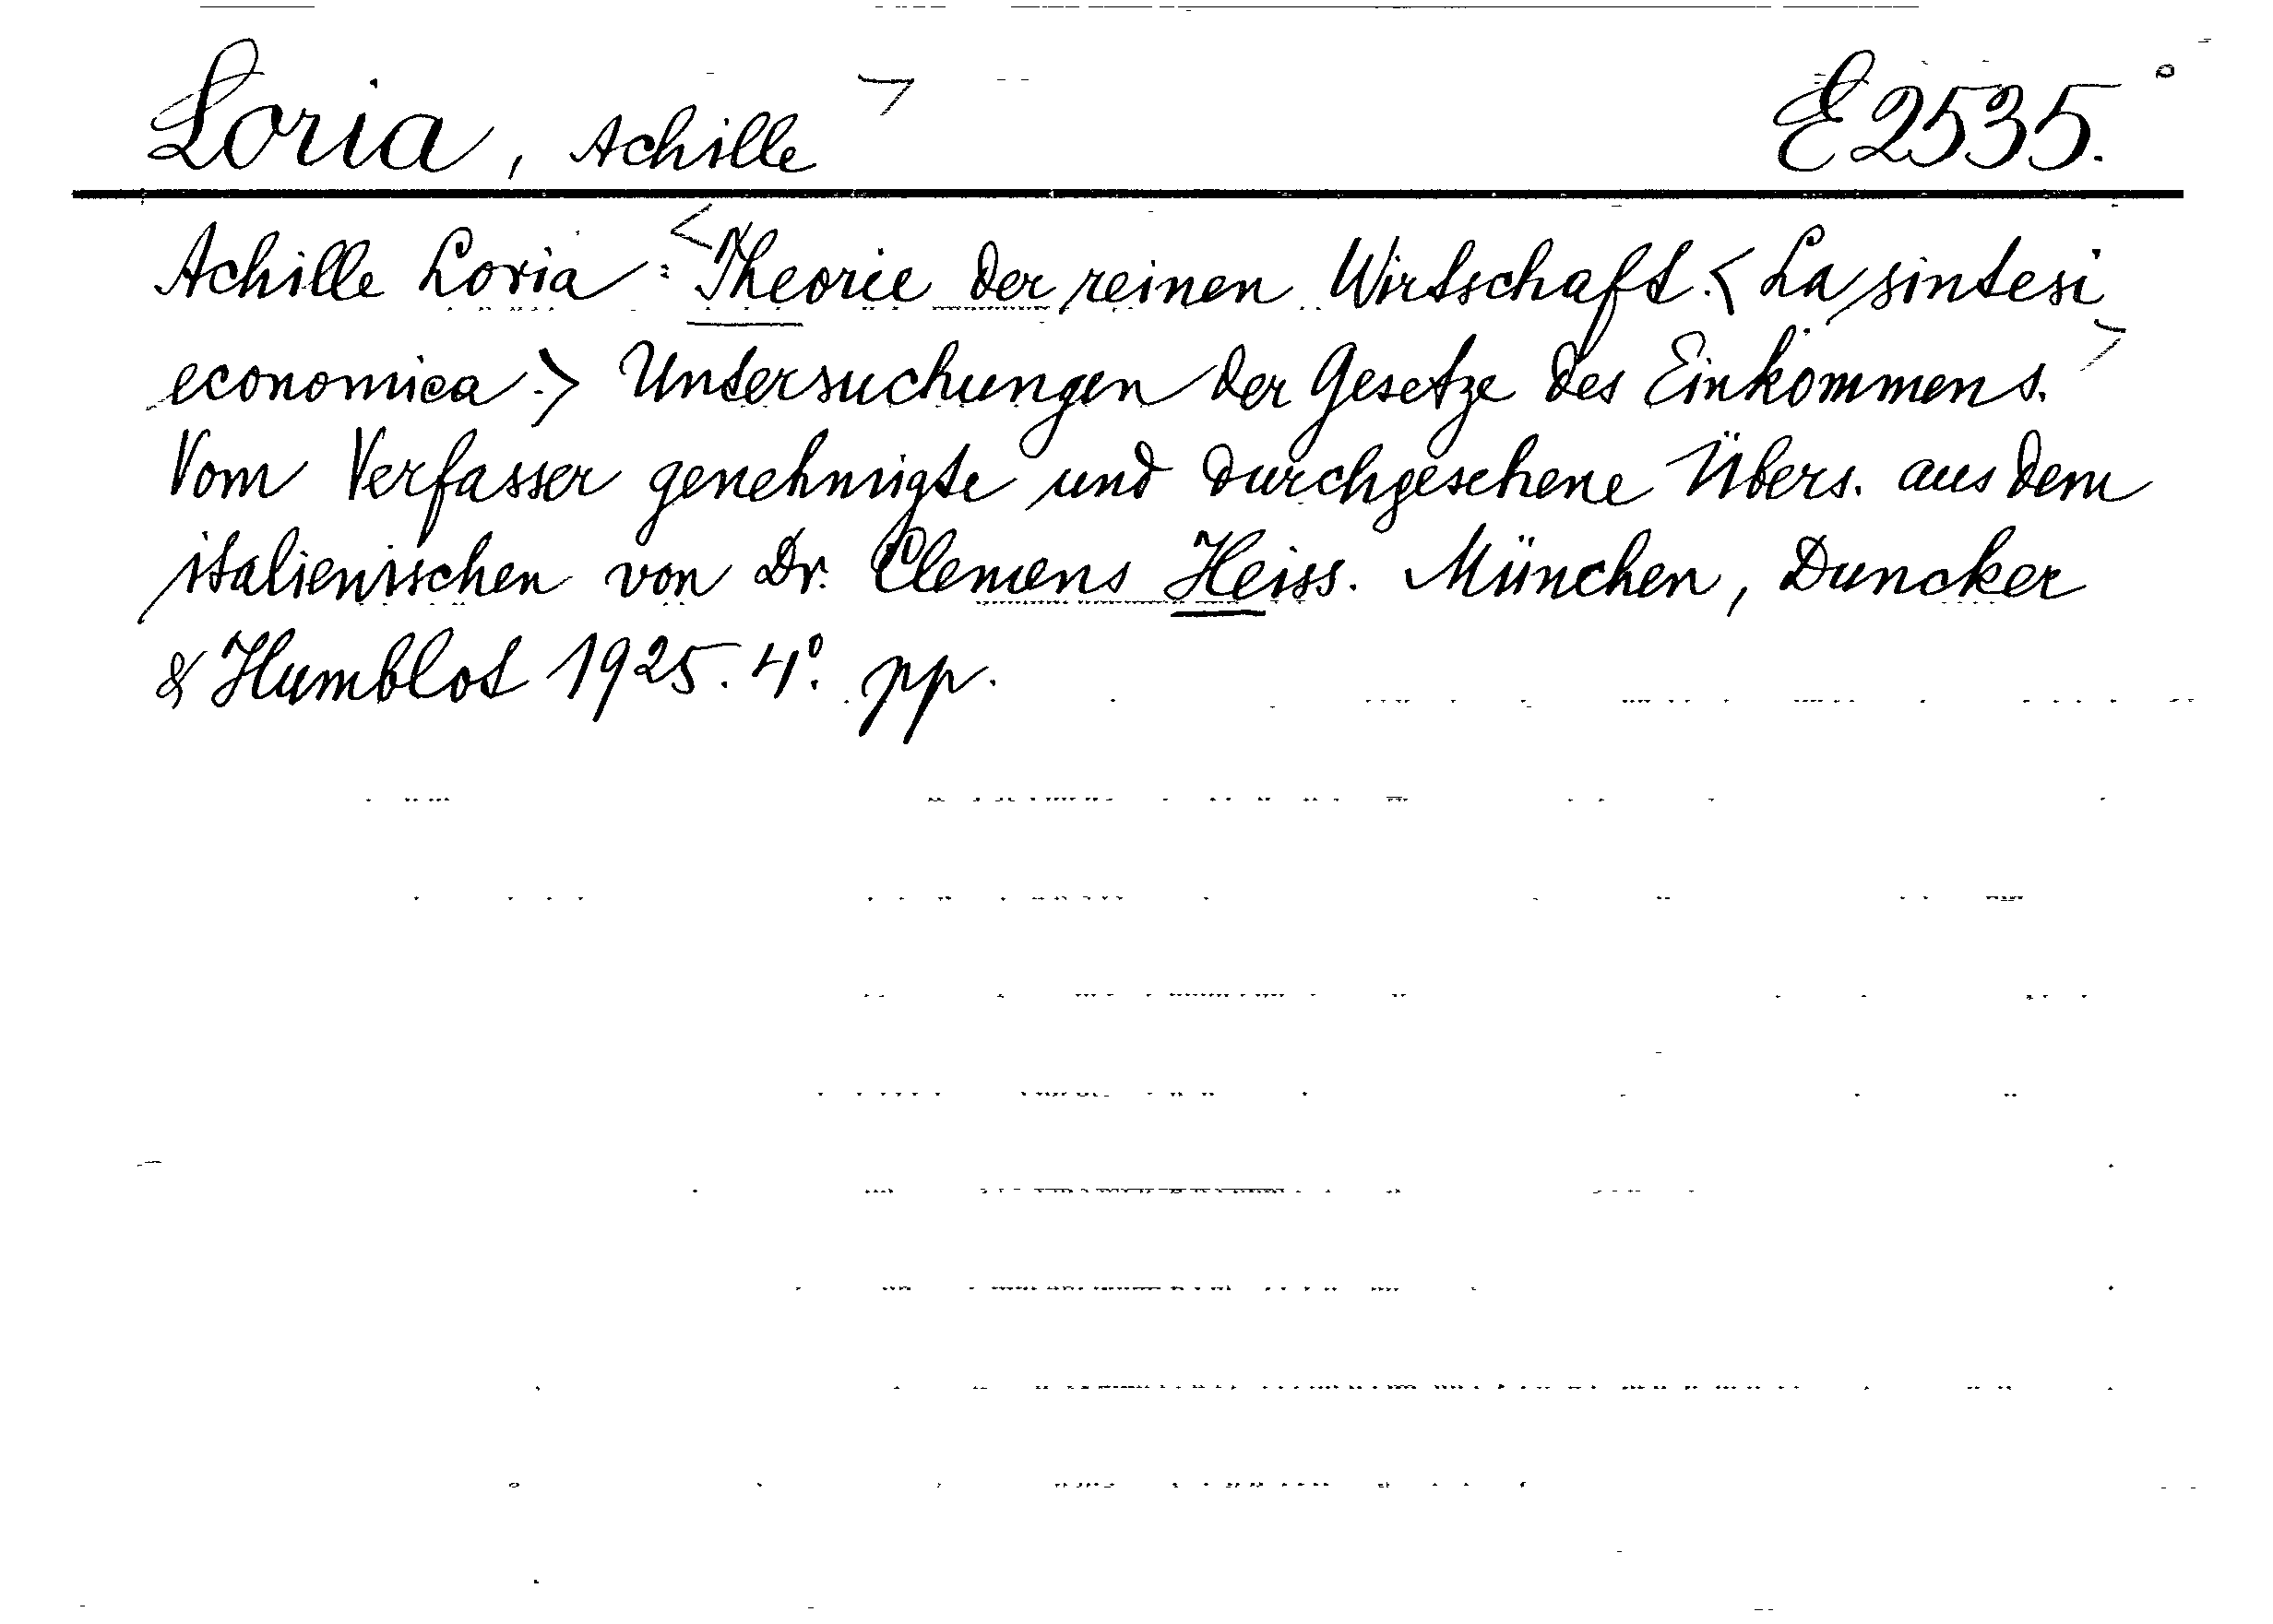 Loria, Achille E 2535.
Achille Loria: <Theorie der reinen Wirtschaft. <La sintesi
economica.> Untersuchungen der Gesetze des Einkommens.>
Vom Verfasser genehmigte und durchgesehene Übers. aus dem
italienischen von Dr. Clemens Heiss. München, Duncker
& Humblot 1925. 4°. pp.